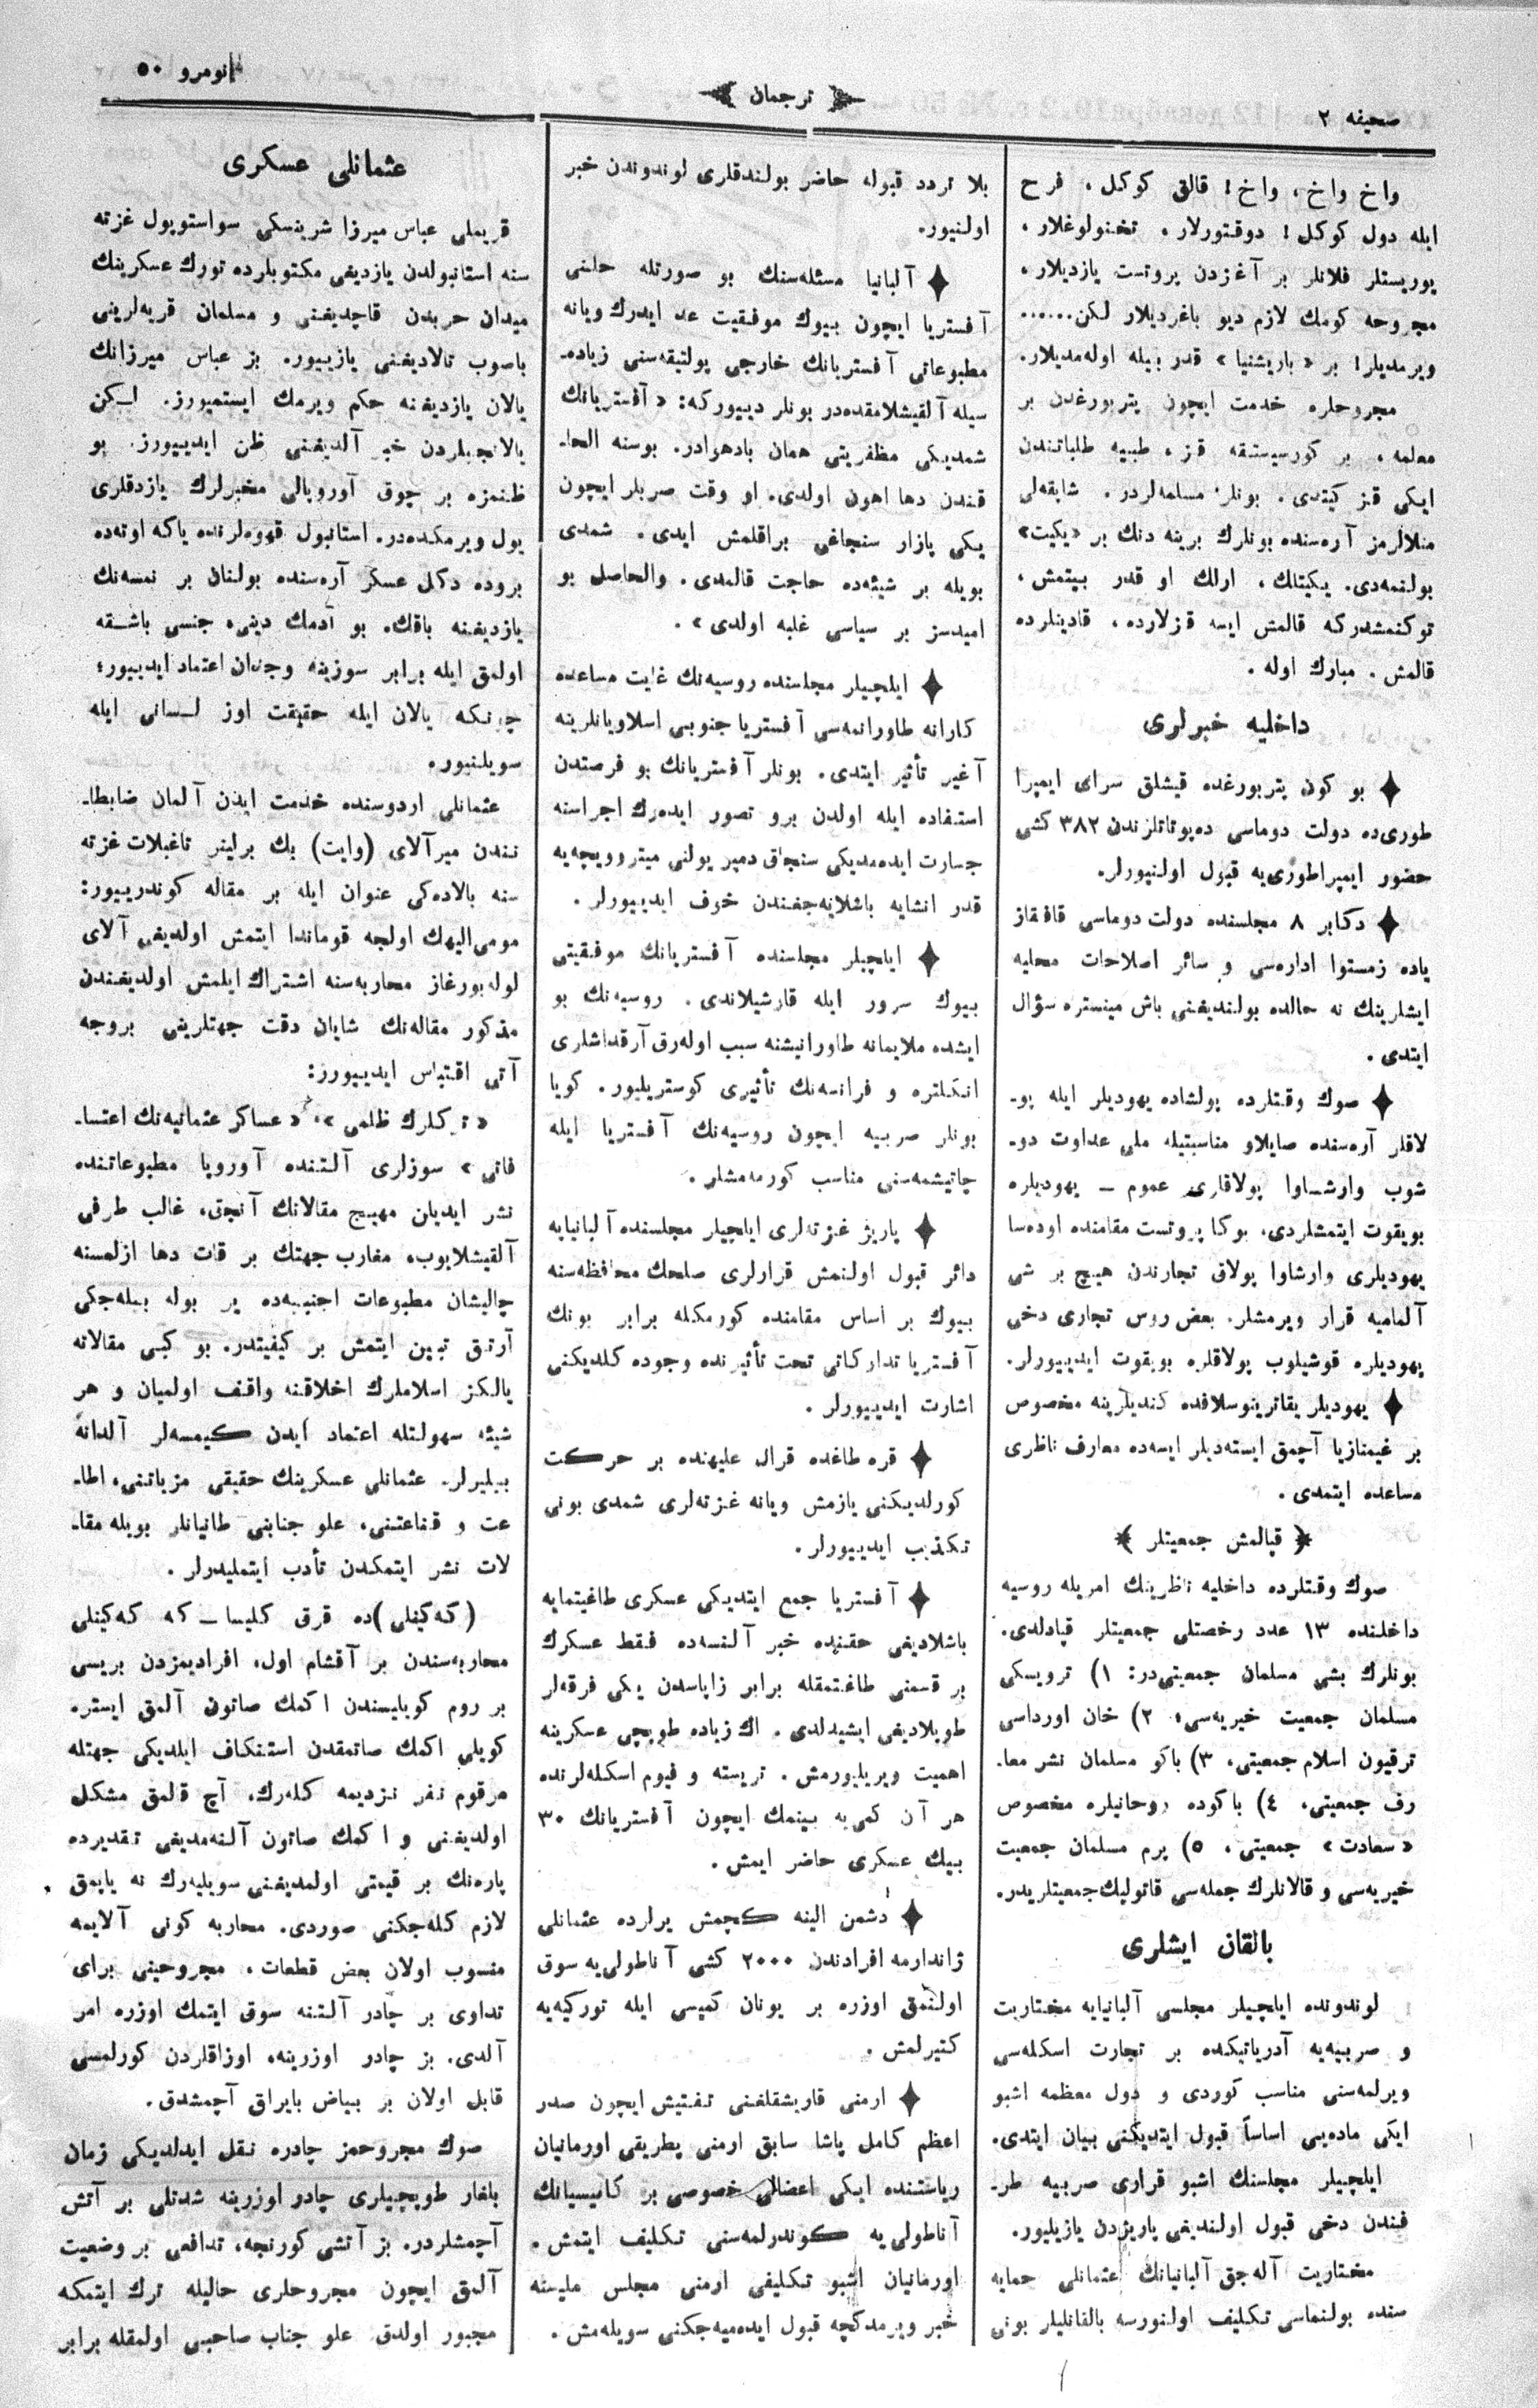 صحیفه ۲
ترجمان
نومرو ۵۰
واخ واخ، واخ! قالق كوكل، فرح
ایله دول كوكل! دوقتورلار، تخنولوغلار،
یوریستلر فلانلر بر آغزدن پروتست یازدیلار،
مجروحه كومك لازم دیو باغردیلار لكن......
ویرمدیلر! بر «باریشنیا» قدر بیله اوله‌مدیلار.
مجروحلره خدمت ایچون پتربورغدن بر
معلمه، بر كورسیستقه قز، طبیه طلباتندن
ایكی قز كیتدی. بونلر مسلمه‌لردر. شابقه‌لی
منلالرمز آره‌سنده بونلرك برینه دنك بر «یكیت»
بولنمه‌دی. یكیتلك، ارلك او قدر بیتمش،
توكنمشدركه قالمش ایسه قزلارده، قادینلرده
قالمش. مبارك اوله.
داخلیه خبرلری
بو كون پتربورغده قیشلق سرای ایمپرا
طوری‌ده دولت دوماسی ده‌پوتاتلرندن ۳۸۲ كشی
حضور ایمپراطوری‌یه قبول اولنیورلر.
دكابر ۸ مجلسنده دولت دوماسی قافقاز
یاده زمستوا اداره‌سی و سائر اصلاحات محلیه
ایشلرینك نه حالده بولندیغنی باش مینستره سؤال
ایتدی.
صوك وقتلرده پولشاده یهودیلر ایله پو-
لاقلر آره‌سنده صایلاو مناسبتیله ملی عداوت دو-
شوب وارشاوا پولاقلری عموم - یهودیلره
بویقوت ایتمشلردی، بوكا پروتست مقامنده اوده‌سا
یهودیلری وارشاوا پولاق تجارندن هیچ بر شی
آلمامیه قرار ویرمشلر. بعض روس تجاری دخی
یهودیلره قوشیلوب پولاقلره بویقوت ایدییورلر.
یهودیلر یقاترینوسلافده كندیلرینه مخصوص
بر غیمنازیا آچمق ایسته‌دیلر ایسه‌ده معارف ناظری
مساعده ایتمدی.
قپالمش جمعیتلر
صوك وقتلرده داخلیه ناظرینك امریله روسیه
داخلنده ۱۳ عدد رخصتلی جمعیتلر قپادلدی.
بونلرك بشی مسلمان جمعیتی‌در: ۱) ترویسكی
مسلمان جمعیت خیریه‌سی، ۲) خان اورداسی
ترقیون اسلام جمعیتی، ۳) باكو مسلمان نشر معا-
رف جمعیتی، ٤) باكوده روحانیلره مخصوص
«سعادت» جمعیتی، ۵) پرم مسلمان جمعیت
خیریه‌سی و قالانلرك جمله‌سی قاتولیك جمعیتلریدر.
بالقان ایشلری
لوندونده ایلچیلر مجلسی آلبانیایه مختاریت
و صربیه‌یه آدریاتیكده بر تجارت اسكله‌سی
ویرلمه‌سنی مناسب كوردی و دول معظمه اشبو
ایكی ماده‌یی اساساً قبول ایتدیكنی بیان ایتدی.
ایلچیلر مجلسنك اشبو قراری صربیه طر-
فندن دخی قبول اولندیغی پاریژدن یازیلیور.
مختاریت آله‌جق آلبانیانك عثمانلی حمایه
سنده بولنماسی تكلیف اولنورسه بالقانلیلر بونی
بلا تردد قبوله حاضر بولندقلری لوندوندن خبر
اولنیور.
آلبانیا مسئله‌سنك بو صورتله حلنی
آفستریا ایچون بیوك موفقیت عد ایدرك ویانه
مطبوعاتی آفستریانك خارجی پولتیقه‌سنی زیاده-
سیله آلقیشلامقده‌در بونلر دییوركه: «آفستریانك
شمدیكی مظفریتی همان بادهوادر. بوسنه الحا-
قندن دها اهون اولدی. او وقت صربلر ایچون
یكی پازار سنجاغی براقلمش ایدی. شمدی
بویله بر شیئه‌ده حاجت قالمدی. والحاصل بو
امیدسز بر سیاسی غلبه اولدی».
ایلچیلر مجلسنده روسیه‌نك غایت مساعده
كارانه طاورانمه‌سی آفستریا جنوبی اسلاویانلرینه
آغیر تأثیر ایتدی. بونلر آفستریانك بو فرصتدن
استفاده ایله اولدن برو تصور ایده‌رك اجراسنه
جسارت ایده‌مدیكی سنجاق دمیر یولنی میتروویچه‌یه
قدر انشایه باشلایه‌جغندن خوف ایدییورلر.
ایلچیلر مجلسنده آفستریانك موفقیتی
بیوك سرور ایله قارشیلاندی. روسیه‌نك بو
ایشده ملایمانه طاورانیشنه سبب اوله‌رق آرقداشلری
انكلتره و فرانسه‌نك تأثیری كوستریلیور. كویا
بونلر صربیه ایچون روسیه‌نك آفستریا ایله
چاتیشمه‌سنی مناسب كورمه‌مشلر.
پاریژ غزته‌لری ایلچیلر مجلسنده آلبانیایه
دائر قبول اولنمش قرارلری صلحك محافظه‌سنه
بیوك بر اساس مقامنده كورمكله برابر بونك
آفستریا تداركاتی تحت تأثیرنده وجوده كلدیكنی
اشارت ایدییورلر.
قره طاغده قرال علیهنده بر حركت
كورلدیكنی یازمش ویانه غزته‌لری شمدی بونی
تكذیب ایدییورلر.
آفستریا جمع ایتدیكی عسكری طاغیتمایه
باشلادیغی حقنده خبر آلنسه‌ده فقط عسكرك
بر قسمنی طاغتمقله برابر زاپاسدن یكی فرقه‌لر
طوپلادیغی ایشیدلدی. اك زیاده طوپچی عسكرینه
اهمیت ویریلیورمش. تریسته و فیوم اسكله‌لرنده
هر آن كمی‌یه بینمك ایچون آفستریانك ۳۰
بیك عسكری حاضر ایمش.
دشمن الینه كچمش یرلرده عثمانلی
ژاندارمه افرادندن ۲۰۰۰ كشی آناطولی‌یه سوق
اولنمق اوزره بر یونان كمیسی ایله توركیه‌یه
كتیرلمش.
ارمنی قاریشقلغنی تفتیش ایچون صدر
اعظم كامل پاشا سابق ارمنی پطریقی اورمانیان
ریاستنده ایكی اعضالی خصوصی بر كامیسیانك
آناطولی‌یه كوندرلمه‌سنی تكلیف ایتمش.
اورمانیان اشبو تكلیفی ارمنی مجلس ملیسنه
خبر ویرمدكچه قبول ایده‌میه‌جكنی سویله‌مش.
عثمانلی عسكری
قریملی عباس میرزا شرینسكی سواستوپول غزته
سنه استانبولدن یازدیغی مكتوبلرده تورك عسكرینك
میدان حربدن قاچدیغنی و مسلمان قریه‌لرینی
باصوب تالادیغنی یازییور. بز عباس میرزانك
یالان یازدیغنه حكم ویرمك ایستمیورز. لكن
یالانجیلردن خبر آلدیغنی ظن ایدییورز. بو
ظنمزه بر چوق آوروپالی مخبرلرك یازدقلری
یول ویرمكده‌در. استانبول قهوه‌لرنده یاكه اوته‌ده
بروده دكل عسكر آره‌سنده بولنان بر نمسه‌نك
یازدیغنه باقك. بو آدمك دینی، جنسی باشقه
اولمق ایله برابر سوزینه وجدان اعتماد ایدییور؛
چونكه یالان ایله حقیقت اوز لسانی ایله
سویلنیور.
عثمانلی اردوسنده خدمت ایدن آلمان ضابطا-
نندن میر آلای (وایت) بك برلینر تاغبلات غزته
سنه بالاده‌كی عنوان ایله بر مقاله كوندرییور:
مومی‌الیهك اولجه قوماندا ایتمش اولدیغی آلای
لوله بورغاز محاربه‌سنه اشتراك ایلمش اولدیغندن
مذكور مقاله‌نك شایان دقت جهتلرینی بروجه
آتی اقتباس ایدییورز:
«تركلرك ظلمی»، «عساكر عثمانیه‌نك اعتسا-
فاتی» سوزلری آلتنده آوروپا مطبوعاتنده
نشر ایدیلن مهیج مقالانك آنجق، غالب طرفی
آلقیشلایوب، مغلوب جهتك بر قات دها ازلمسنه
چالیشان مطبوعات اجنبیه‌ده یر بوله بیله‌جكی
آرتق تبین ایتمش بر كیفیتدر. بو كبی مقالاته
یالكز اسلاملرك اخلاقنه واقف اولمیان و هر
شیئه سهولتله اعتماد ایدن كیمسه‌لر آلدانه
بیلیرلر. عثمانلی عسكرینك حقیقی مزیاتنی، اطا-
عت و قناعتنی، علو جنابنی طانیانلر بویله مقا-
لات نشر ایتمكدن تأدب ایتملیدرلر.
(كه‌كنلی)ده قرق كلیسا - كه كه‌كنلی
محاربه‌سندن بر آقشام اول، افرادیمزدن بریسی
بر روم كویلیسندن اكمك صاتون آلمق ایستر،
كویلی اكمك صاتمقدن استنكاف ایلدیكی جهتله
مرقوم نفر نزدیمه كله‌رك، آچ قالمق مشكل
اولدیغنی و اكمك صاتون آلنه‌مدیغی تقدیرده
پاره‌نك بر قیمتی اولمدیغنی سویلیه‌رك نه یاپمق
لازم كله‌جكنی صوردی. محاربه كونی آلایمه
منسوب اولان بعض قطعات، مجروحینی برای
تداوی بر چادر آلتنه سوق ایتمك اوزره امر
آلدی. بز چادر اوزرینه، اوزاقلردن كورلمسی
قابل اولان بر بیاض بایراق آچمشدق.
صوك مجروحمز چادره نقل ایدلدیكی زمان
بلغار طوپجیلری چادر اوزرینه شدتلی بر آتش
آچمشلردر. بز آتشی كورنجه، تدافعی بر وضعیت
آلمق ایچون مجروحلری حالیله ترك ایتمكه
مجبور اولدق علو جناب صاحبی اولمقله برابر